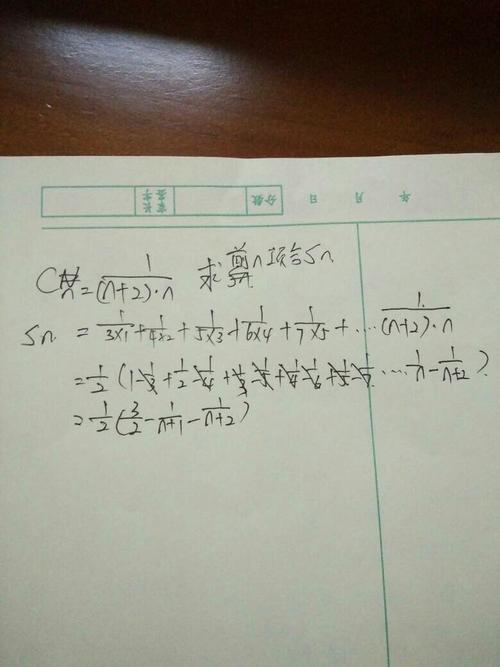 年 月 日 分数 家长签字
Cn = 1/((n+2)·n) 求前n项合Sn
Sn = 1/(3×1) + 1/(4×2) + 1/(5×3) + 1/(6×4) + 1/(7×5) + … 1/((n+2)·n)
= 1/2 (1 - 1/3 + 1/2 - 1/4 + 1/3 - 1/5 + 1/4 - 1/6 + 1/5 - 1/7 … 1/n - 1/(n+2))
= 1/2 (3/2 - 1/(n+1) - 1/(n+2))